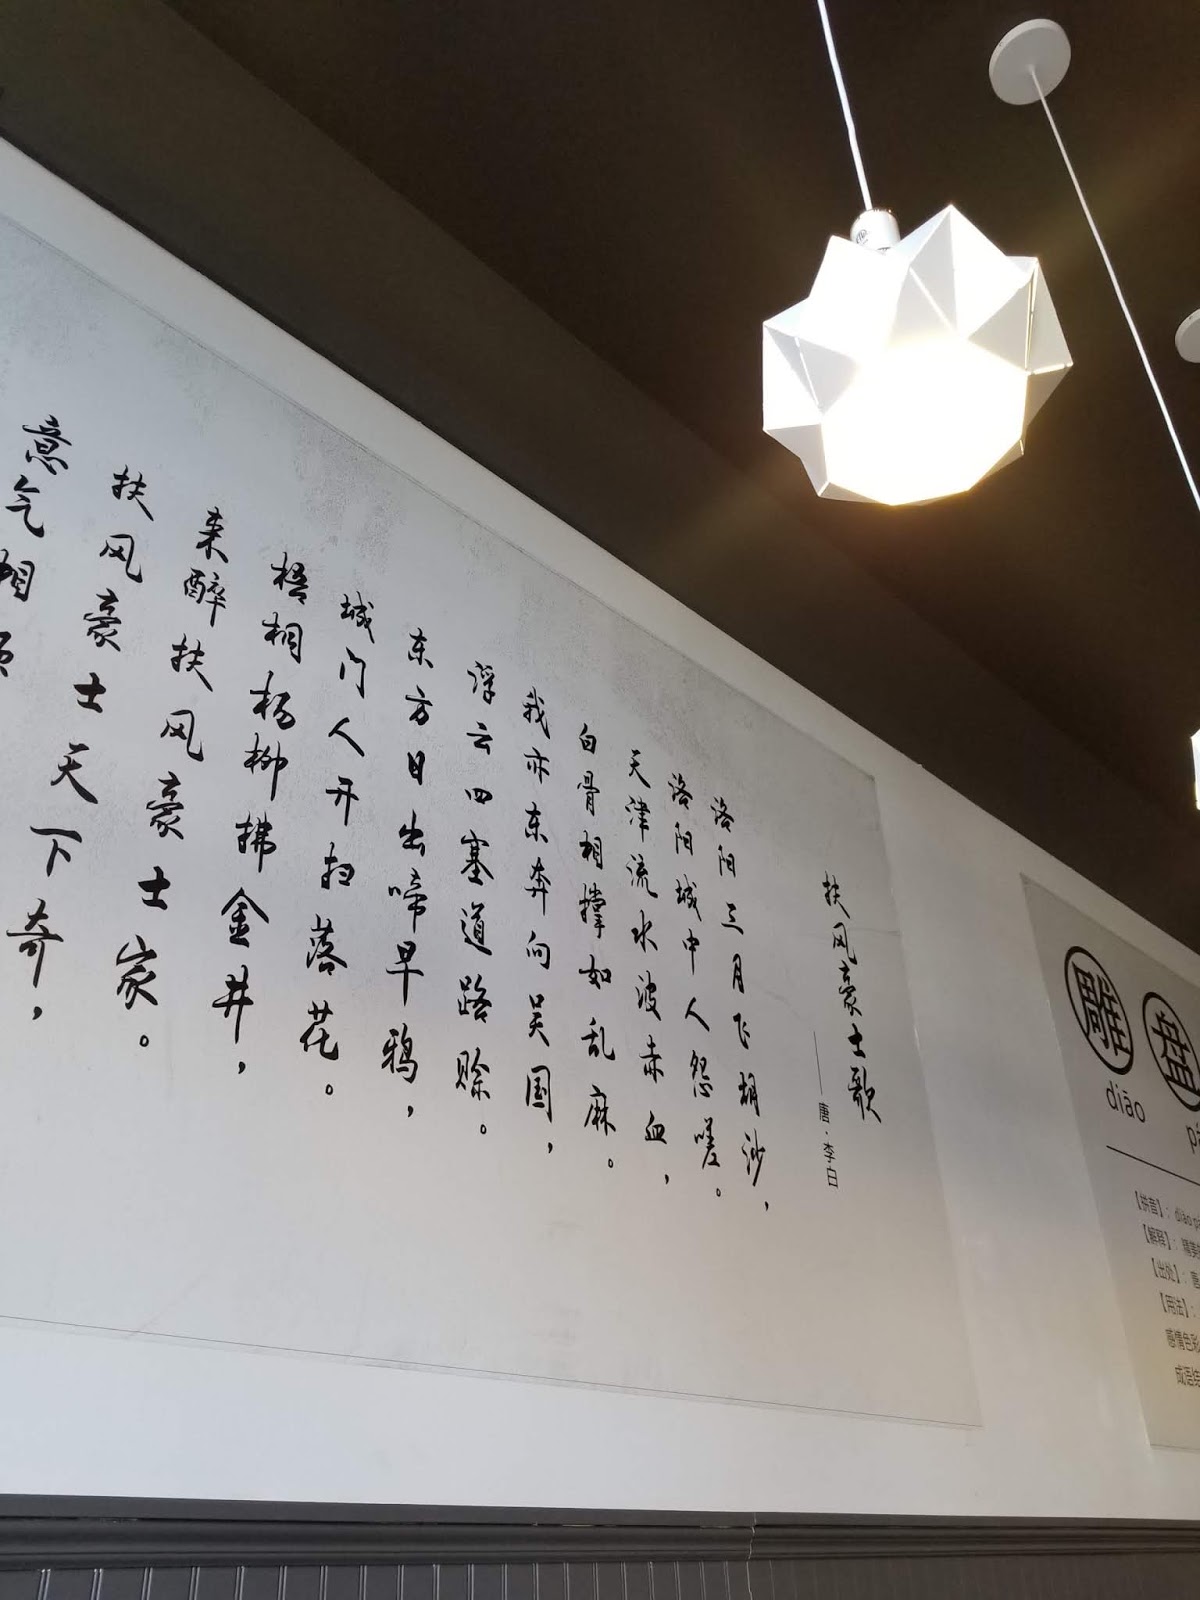 扶风豪士歌
——唐·李白
洛阳三月飞胡沙，
洛阳城中人怨嗟。
天津流水波赤血，
白骨相撑如乱麻。
我亦东奔向吴国，
浮云四塞道路赊。
东方日出啼早鸦，
城门人开扫落花。
梧桐杨柳拂金井，
来醉扶风豪士家。
扶风豪士天下奇，
意气相
雕盘
diāo
【拼音】：diāo
【解释】：精美
【出处】：唐
【用法】：
感情色彩
成语结